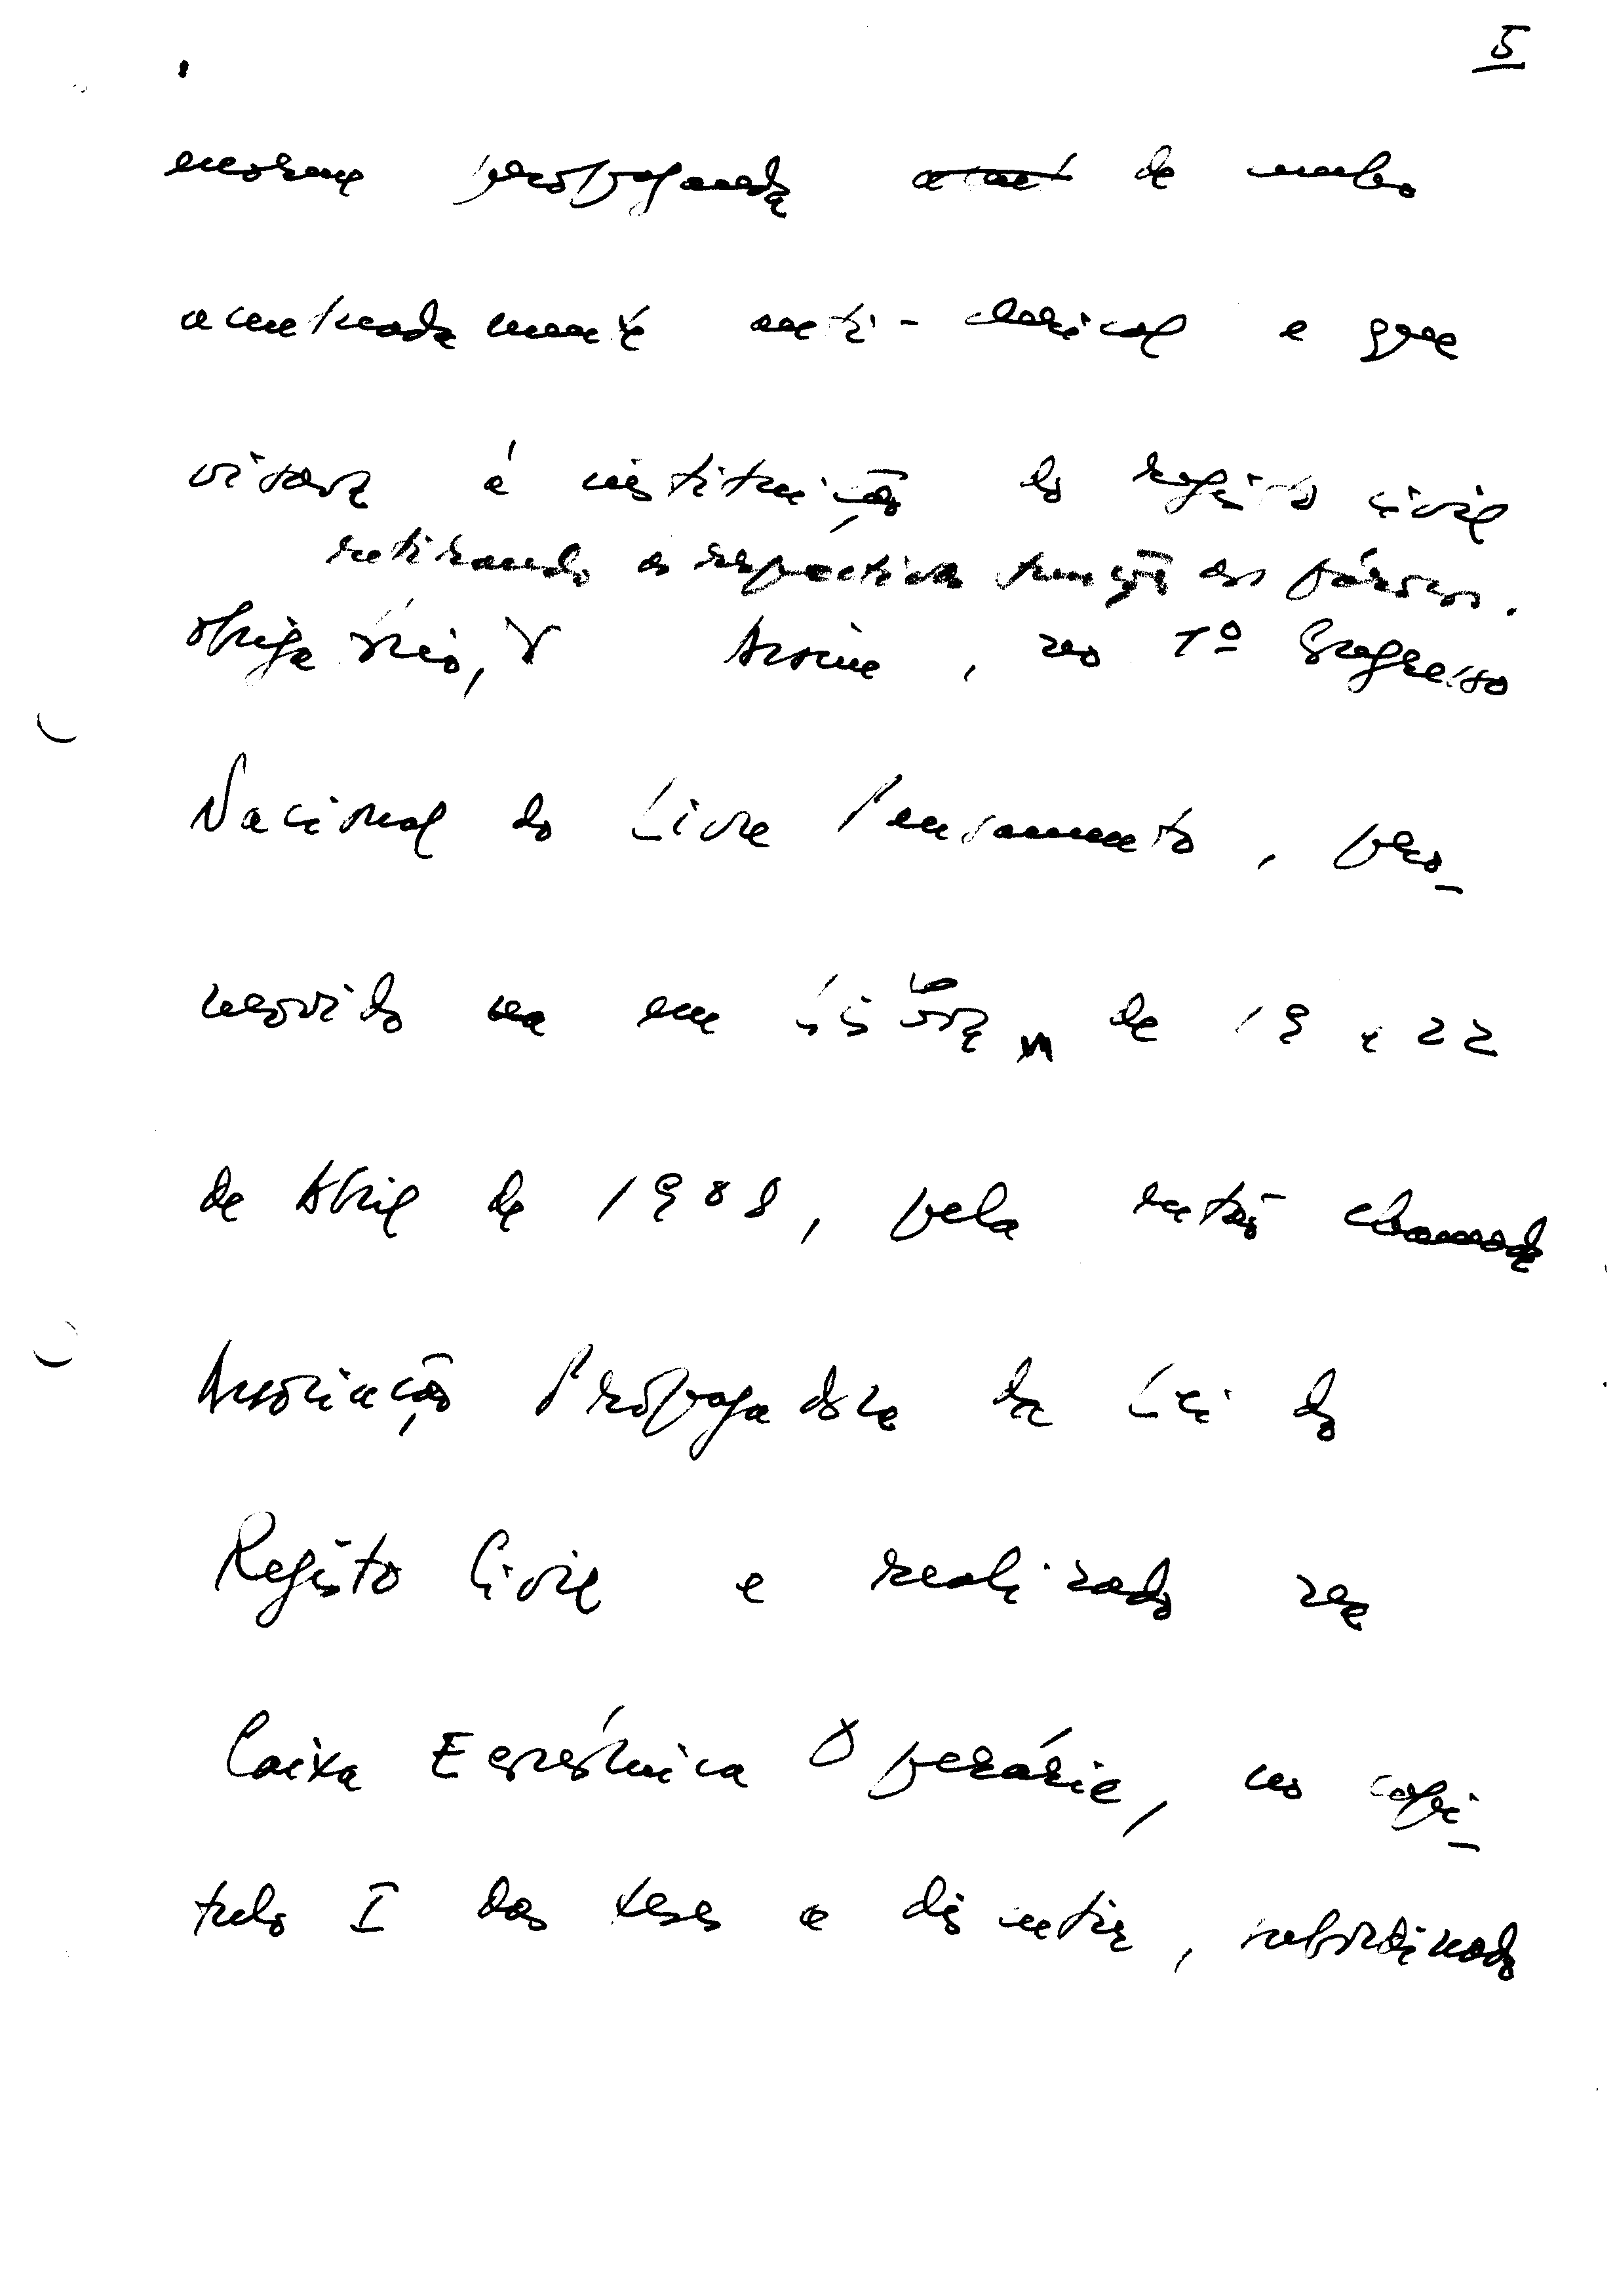 5
mesma propaganda de cunho
acentuadamente anti-clerical e que
visava à instituição do registo civil
retirando a respectiva função aos párocos.
obrigatório, Assim, no 1º Congresso
Nacional do Livre Pensamento, pro-
movido em Lisboa de 19 a 22
de Abril de 1908, pela então chamada
Associação Propagadora da Lei do
Registo Civil e realizado na
Caixa Económica Operária, no capí-
tulo I das teses a discutir, subordinado